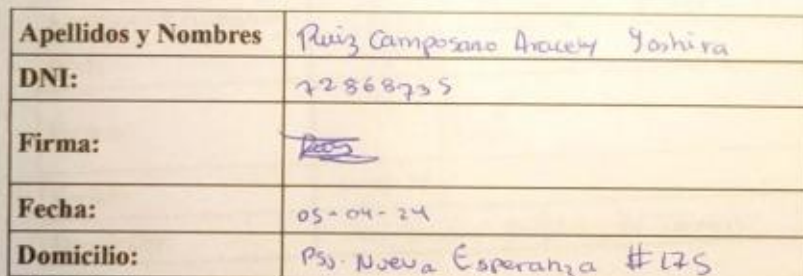 Apellidos y Nombres Ruiz Camposano Aracely Yoshira
DNI: 72868735
Firma:
Fecha: 05-04-24
Domicilio: Psj. Nueva Esperanza #175